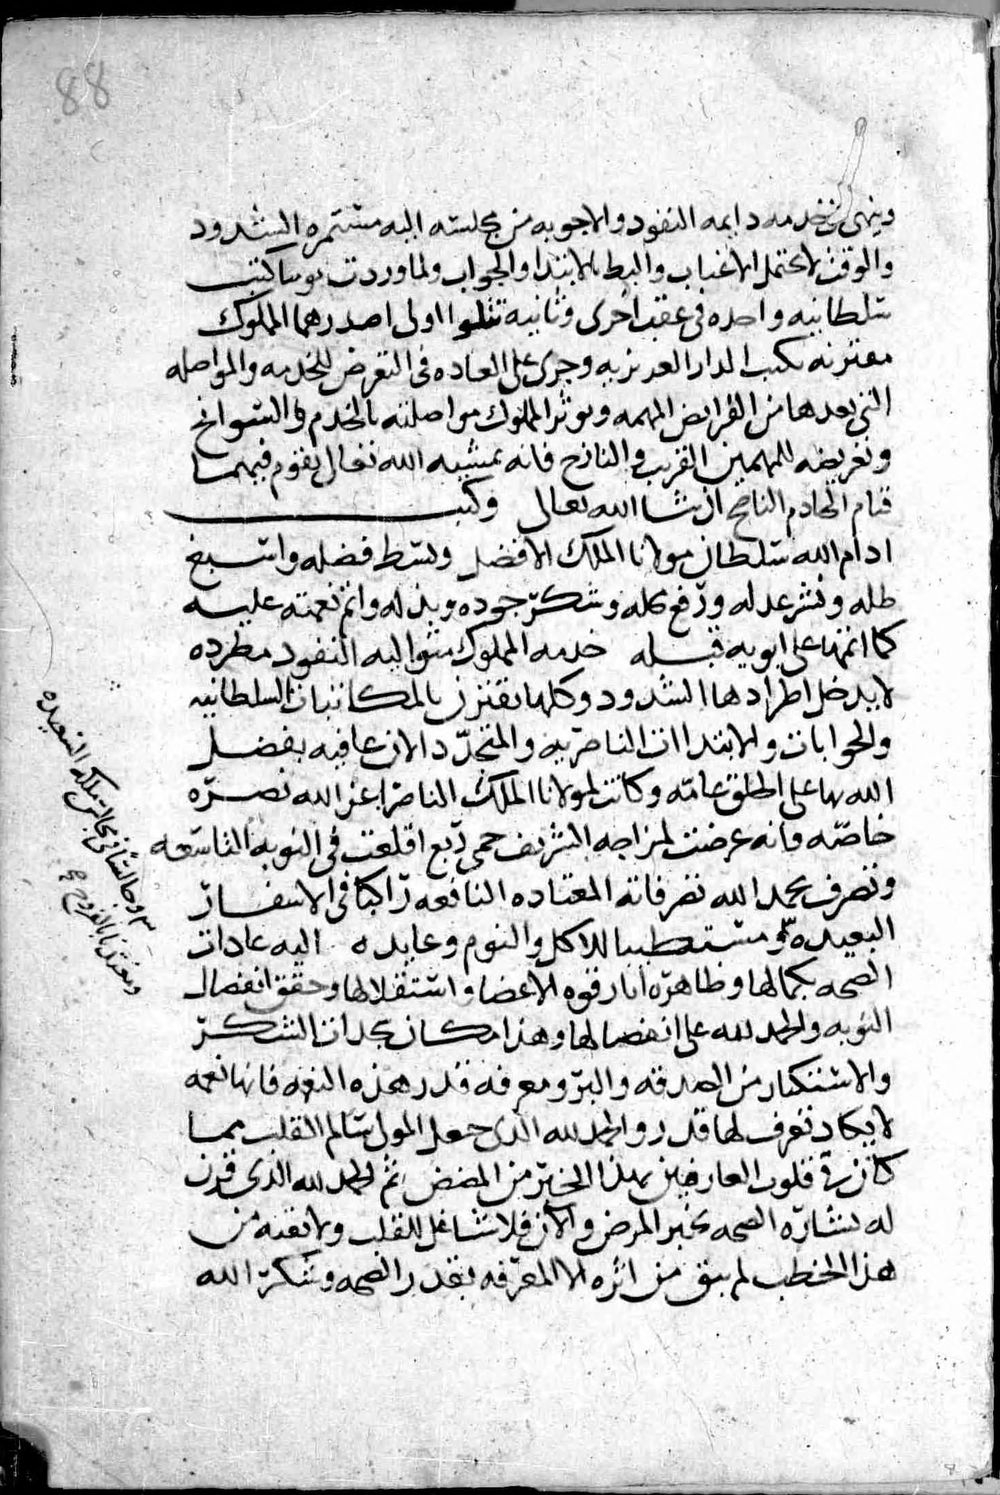 88
وينهى ان خدمه دايمه النفود والاجوبه من مجلسته اليه مستمره الشدود
والوقت لا يحتمل الاغباب والبط بالابتدا والجواب ولما وردت نوسا كتب
سلطانيه واحده فى عقب اخرى وثانيه تتلوا اولى اصدرهما المملوك
مقترنه بكتب الدار العزيزيه وجرى على العاده فى التعرض للخدمه والمواصله
التى يعدها من الفرايض المهمه ويوثر المملوك مواصلته بالخدم والسوانح
وتعريضه للمهمين القريب والنازح فانه بمشيه الله تعالى يقوم فيهما
قيام الخادم الناصح ان شا الله تعالى وكتب
ادام الله سلطان مولانا الملك الافضل وبسط فضله واسبغ
ظله ونشر عدله ورفع كله وشكر جوده وبذله واتم نعمته عليه
كما اتمها على ابويه قبله خدمه المملوك متواليه النفود مطرده
لا يدخل اطرادها الشدود وكلها يقترن بالمكاتبات السلطانيه
والجوابات والابتداات الناصريه والمتجدد الان عافيه بفضل
الله بها على الخلق عامه وكانت لمولانا الملك الناصر اعز الله نصره
خاصه فانه عرضت لمزاجه الشريف حمى ربع اقلعت فى النوبه التاسعه
وتصرف بحمد الله تصرفاته المعتاده النافعه راكبا فى الاسفار
البعيده ومستطيبا للاكل والنوم وعايده اليه عادات
الصحه بكمالها وظاهره اثار قوه الاعضا واستقلالها وحقق انفصال
النوبه والحمد لله على انفصالها وهذا مكان سجدات الشكر
والاستكثار من الصدقه والبر ومعرفه قدر هذه النعمه فانها نعمه
لا يكاد تعرف لها قدر والحمد لله الذى جعل المولى سالم القلب مما
كان فى قلوب العارفين بهذا الخبر من المضض ثم الحمد لله الذى قرن
له بشاره الصحه بخبر المرض والان فلا شاغل للقلب ولا بقيه من
هذا الخطب لم يبق من اثره الا المعرفه بقدر الصحه وشكر الله
وجالسا فى مجالس ملكه السعيده